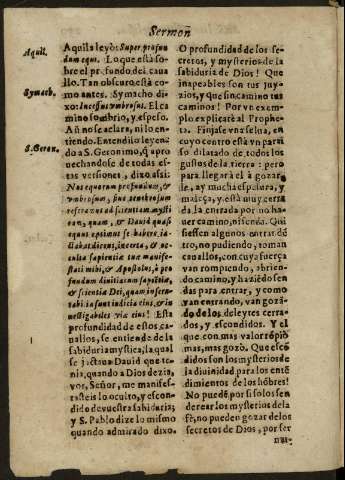 Sermon
Aquil.
Symach.
S. Geron.
Aquila leyò: Super profun
dum equi. Lo que està so-
bre el profundo del caua-
llo. Tan obscuro està co-
mo antes. Symacho di-
xo: Incessus vmbrosus. El ca
mino sombrio, y espeso.
Aũ no se aclara, ni lo en-
tiendo. Entendiòlo leyen-
do a S. Geronimo, q̃ apro
uechandose de todas es-
tas versiones, dixo assi:
Nos equorum profundum, &
vmbrosum, siue tenebrosum
ad scientiam mysti
cam, quam, & Dauid quasi
eques optimi se habere, ia-
ctabat dicens, incerta, & oc
culta sapientia tua manife-
stasti mihi, & Apostolus, ò pro
fundum diuitiarum sapientia,
& scientia Dei, quam inscru-
tabilia sunt iudicia eius, & in
uestigabiles via eius! Esta
profundidad de estos ca-
uallos, se entiende de la
sabiduria mystica, la qual
se jactaua Dauid que te-
nia, quando a Dios dezia,
vos, Señor, me manifes-
tasteis lo oculto, y escon-
dido de vuestra sabiduria:
y S. Pablo dize lo mismo
quando admirado dixo.
O profundidad de los se-
cretos, y mysterios de la
sabiduria de Dios! Que
inapeables son tus juy-
zios, y que sin camino tus
caminos! Por vn exem-
plo explicarè al Prophe-
ta. Finjase vna selua, en
cuyo centro està vn parti
so dilatado de todos los
gustos de la tierra: pero
para llegar a èl a gozar
se, ay mucha espesura, y
maleça, y està muy cerra
da la entrada por no ha-
uer camino, ni senda. Qui
siessen algunos entrar dẽ
tro, no pudiendo, toman
cauallos, con cuya fuerça
van rompiendo, abrien-
do camino, y haziẽdo sen
das para entrar, y como
van entrando, van gozã-
do de los deleytes cerra-
dos, y escondidos. Y el
que con mas valor rõpiò
mas, mas gozò. Que escõ
didos son los mysterios de
la diuinidad para los entẽ
dimientos de los hõbres!
No puedẽ, por si solos sen
derear los mysterios de la
fè, no pueden gozar de los
secretos de Dios, por ser